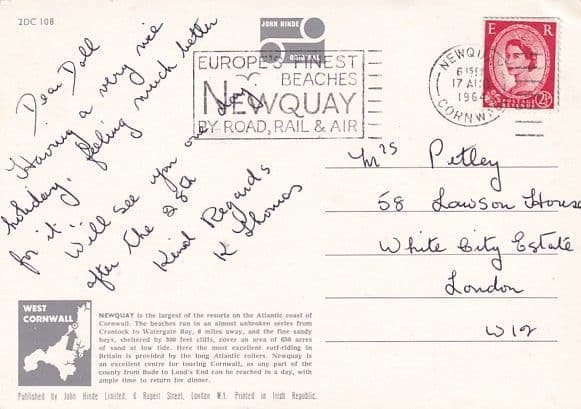 2DC 108
JOHN HINDE
ORIGINAL
EUROPE'S FINEST
BEACHES
NEWQUAY
BY ROAD, RAIL & AIR
NEWQUAY
17 AUG
1964
CORNWALL
E R
POSTAGE
REVENUE
2½D
Dear Doll
Having a very nice
holiday, feeling much better
for it,
Will see you one day
after the 28th
Kind Regards
K Thomas
Mrs Petley
58 Lawson House
White City Estate
London
W12
WEST
CORNWALL
NEWQUAY is the largest of the resorts on the Atlantic coast of
Cornwall. The beaches run in almost unbroken series from
Crantock to Watergate Bay, 6 miles away, and the fine sandy
bays, sheltered by 300 feet cliffs, cover an area of 650 acres
of sand at low tide. Here the most excellent surf-riding in
Britain is provided by the long Atlantic rollers. Newquay is
an excellent centre for touring Cornwall, as any part of the
county from Bude to Land's End can be reached in a day, with
ample time to return for dinner.
Published by John Hinde Limited, 6 Rupert Street, London W.1. Printed in Irish Republic.